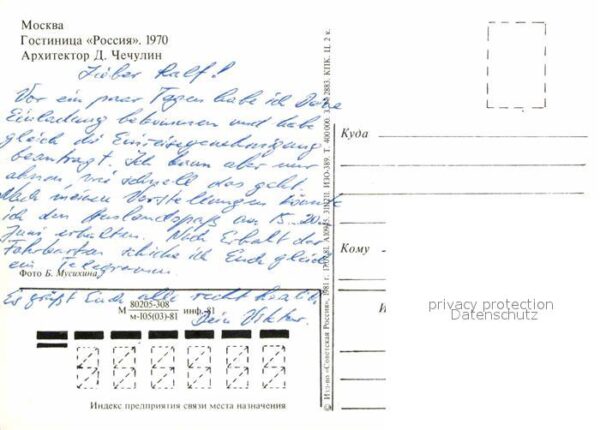 Москва
Гостиница «Россия». 1970
Архитектор Д. Чечулин
Lieber Ralf!
Vor ein paar Tagen habe ich Deine
Einladung bekommen und habe
gleich die Einreisegenehmigung
beantragt. Ich kann aber nur
ahnen wie schnell das geht.
Nach meinen Vorstellungen könnte
ich den Auslandspaß am 15.-20.
Juni erhalten. Nach Erhalt der
Fahrkarten schicke ich Euch gleich
ein Telegramm.
Фото Б. Мусихина
Es grüßt Euch alle recht herzlich
Dein Viktor.
М 80205-308
м-105(03)-81 инф.-81
Индекс предприятия связи места назначения
© Изд-во «Советская Россия», 1981 г.
ИЗО-389. Т. 400 000. 2883. КПК. Ц. 2 к.
Куда
Кому
privacy protection
Datenschutz